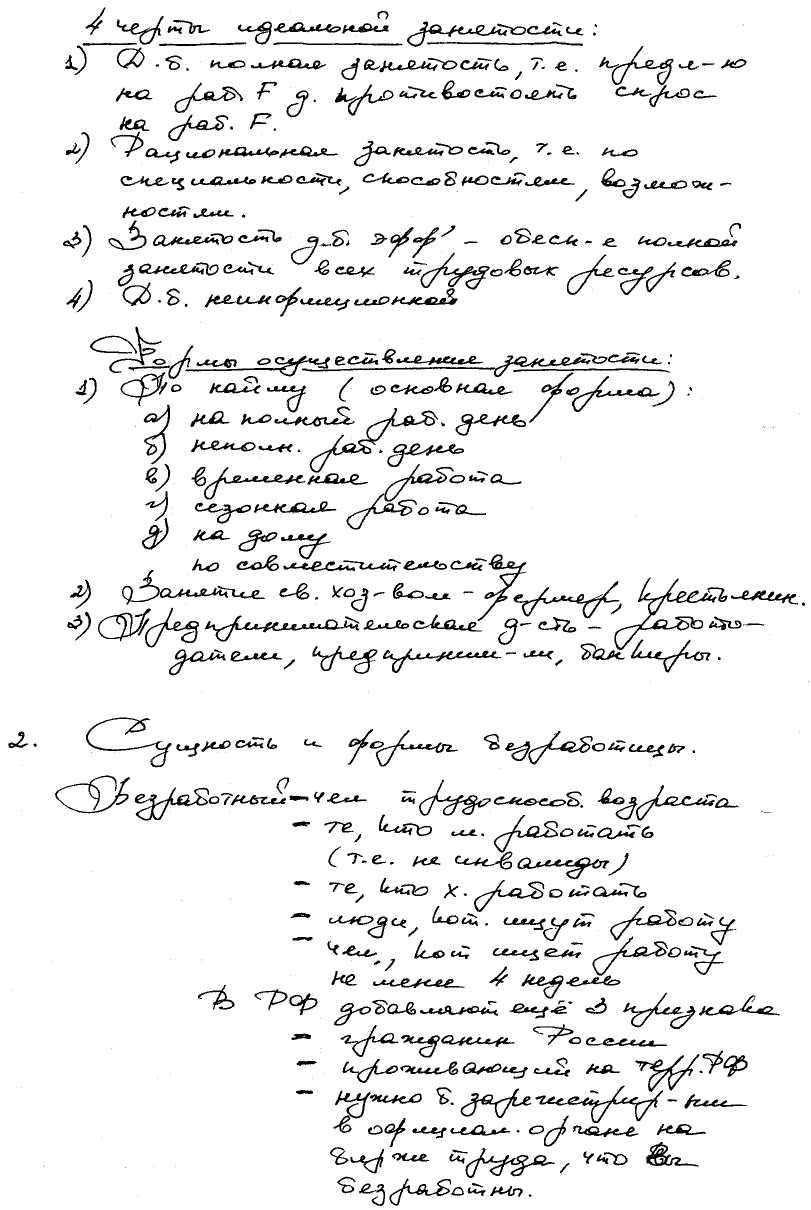 4 черты идеальной занятости:
1) Д.б. полная занятость, т.е. предл-ю
на раб. F д. противостоять спрос
на раб. F.
2) Рациональная занятость, т.е. по
специальности, способностям, возмож-
ностям.
3) Занятость д.б. эфф' – обесп-е полной
занятости всех трудовых ресурсов.
4) Д.б. неинфляционной
Формы осуществления занятости:
1) По найму (основная форма):
а) на полный раб. день
б) неполн. раб. день
в) временная работа
г) сезонная работа
д) на дому
по совместительству
2) Занятие св. хоз-вом – фермер, крестьянин.
3) Предпринимательская д-сть – работо-
датели, предприним-ли, банкиры.
2. Сущность и формы безработицы.
Безработный – чел трудоспособ. возраста
– те, кто м. работать
(т.е. не инвалиды)
– те, кто х. работать
– люди, кот. ищут работу
– чел., кот ищет работу
не менее 4 недель
В РФ добавляют ещё 3 признака
– гражданин России
– проживающий на терр. РФ
– нужно б. зарегистрир-ным
в официал. органе на
бирже труда, что Вы
безработны.